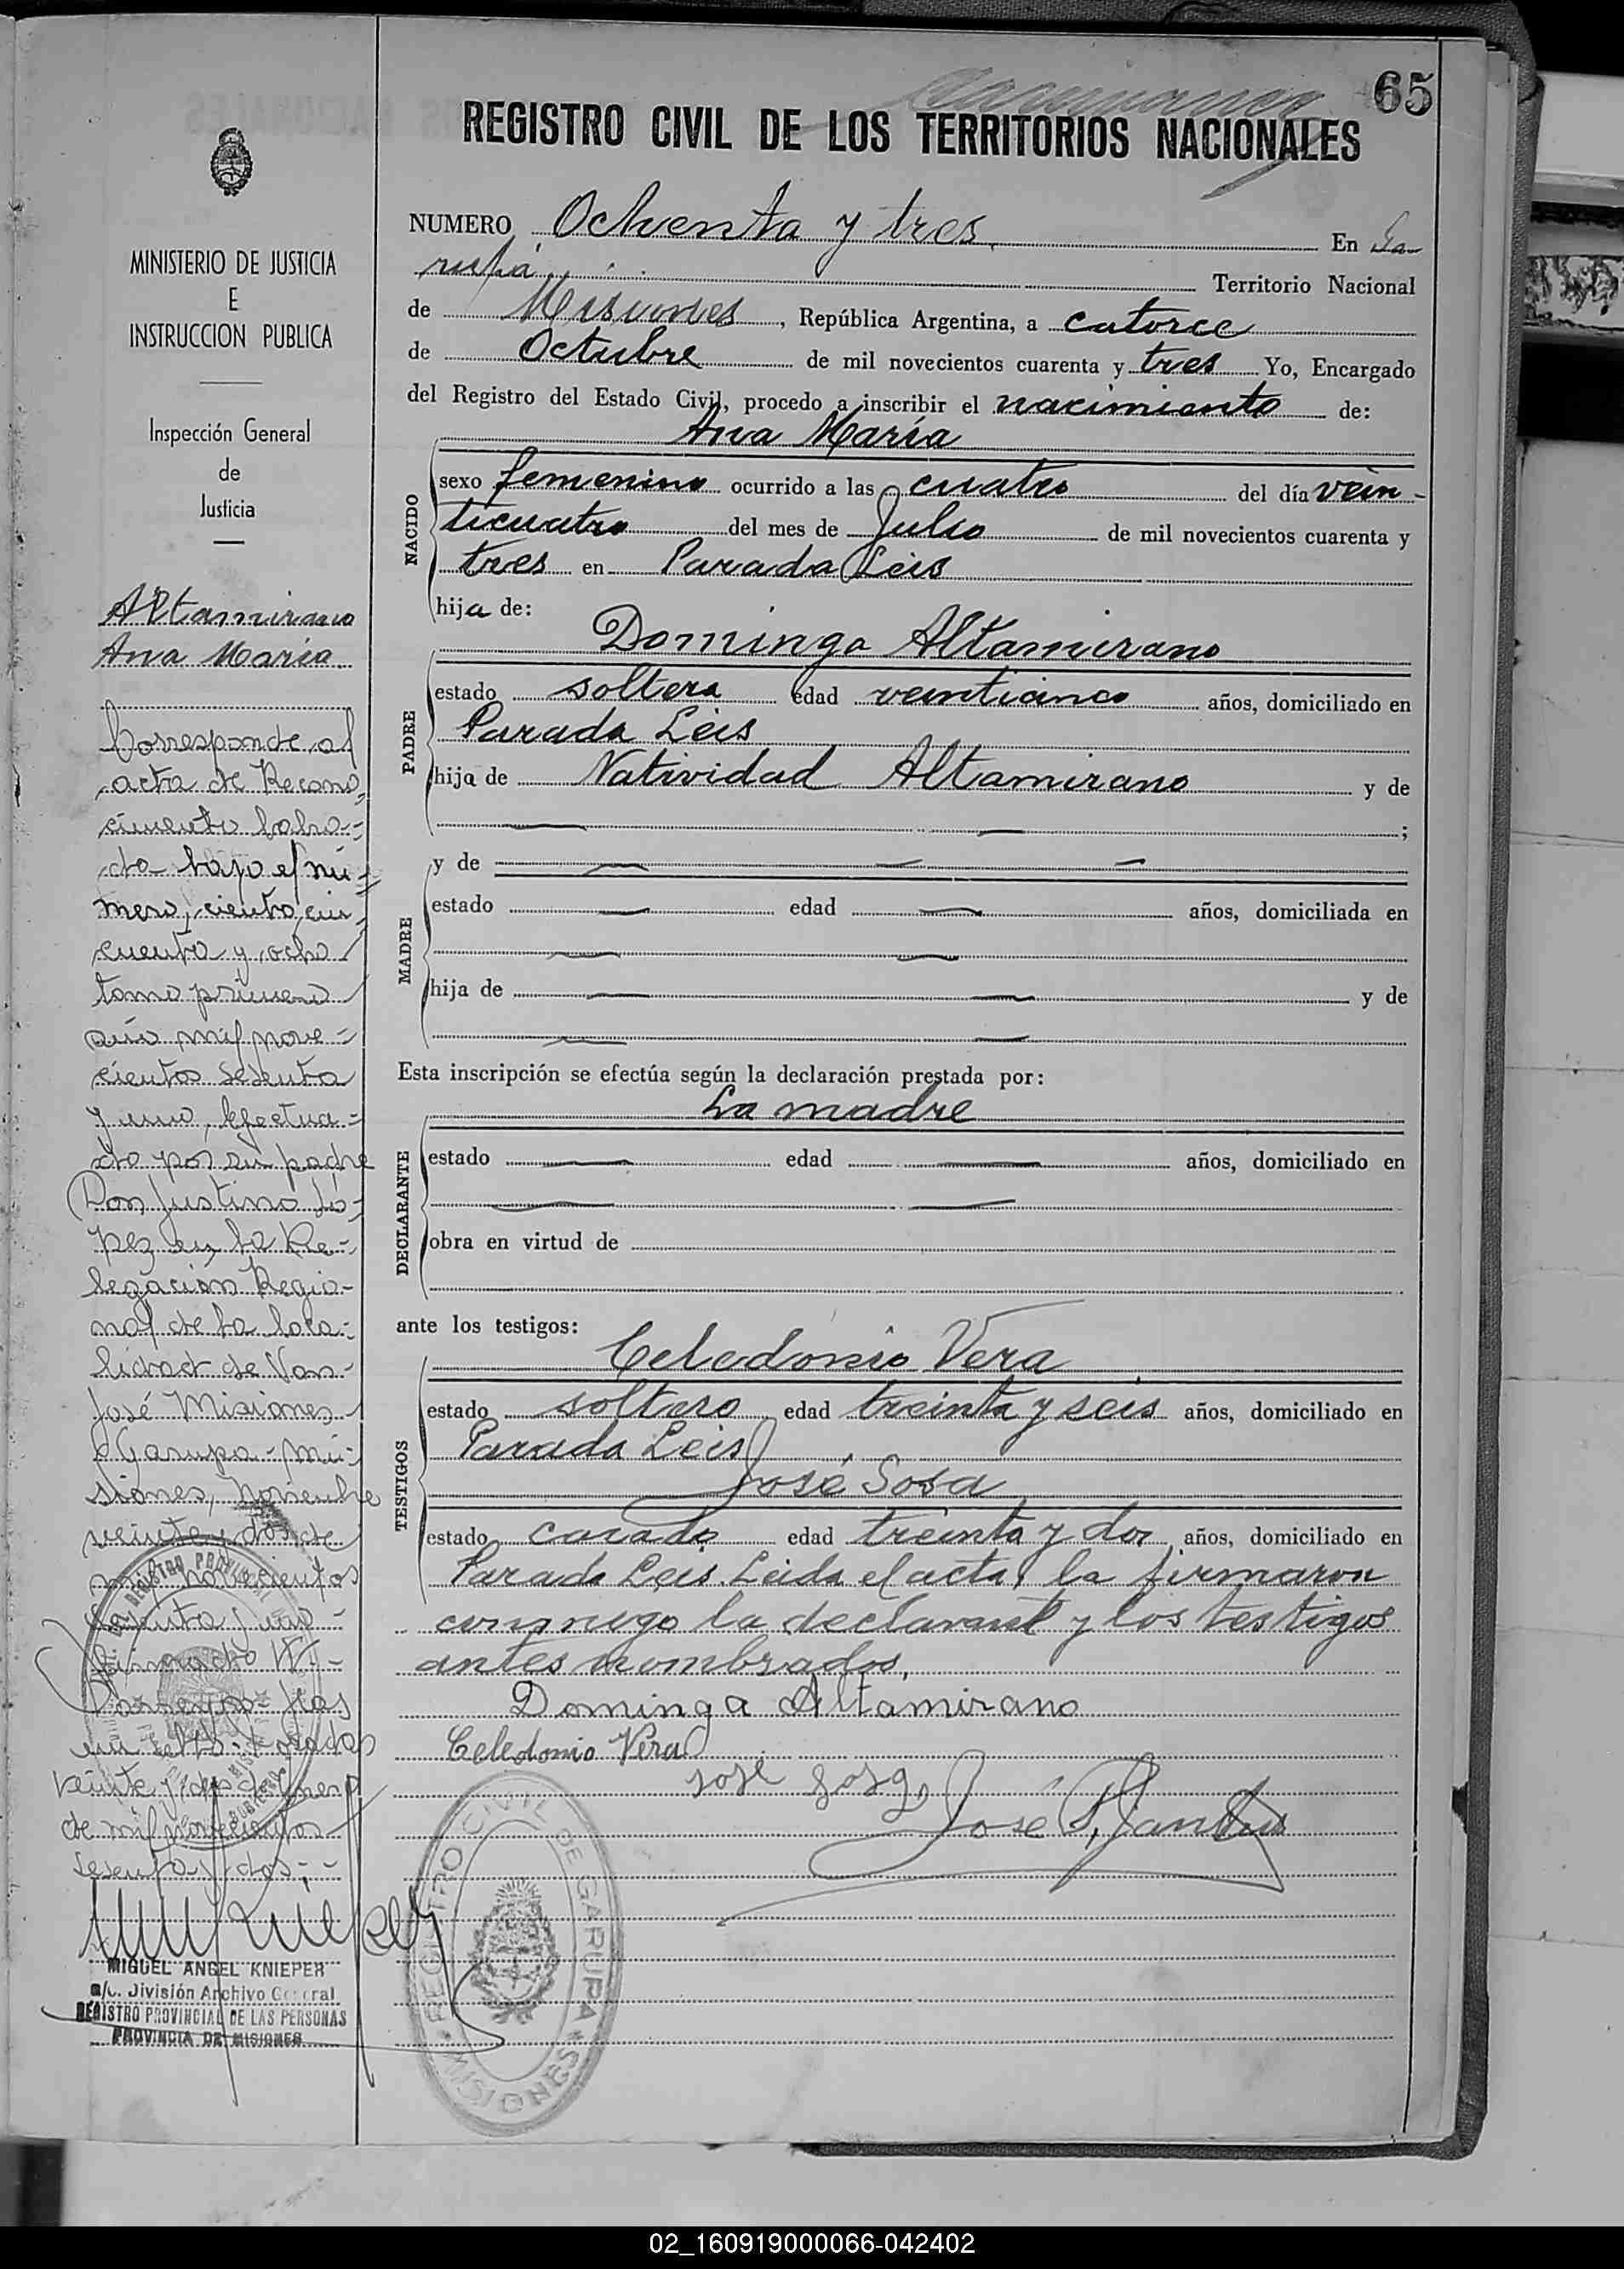 65
REGISTRO CIVIL DE LOS TERRITORIOS NACIONALES
MINISTERIO DE JUSTICIA
E
INSTRUCCION PUBLICA
Inspección General
de
Justicia
Altamirano
Ana María
Corresponde al
acta de Recono=
cimiento labra=
da bajo el nú=
mero, ciento cin=
cuenta y ocho
tomo primero
año mil nove=
cientos sesenta
y uno, efectua=
do por su padre
Don Justino Ló=
pez en la De=
legación Regio-
nal de la loca-
lidad de San-
José Misiones
Garupa - Mi-
siones, Noviembre
veinte y dos de
mil novecientos
sesenta y uno -
veinte y dos de Enero
de mil novecientos
sesenta y dos. - -
MIGUEL ANGEL KNIEPER
a/c. División Archivo General
REGISTRO PROVINCIAL DE LAS PERSONAS
PROVINCIA DE MISIONES
NUMERO Ochenta y tres En Ga-
rupá Territorio Nacional
de Misiones, República Argentina, a catorce
de Octubre de mil novecientos cuarenta y tres Yo, Encargado
del Registro del Estado Civil, procedo a inscribir el nacimiento de:
Ana María
NACIDO
sexo femenino ocurrido a las cuatro del día vein-
ticuatro del mes de Julio de mil novecientos cuarenta y
tres en Parada Leis
hija de:
Dominga Altamirano
PADRE
estado soltera edad veinticinco años, domiciliado en
Parada Leis
hija de Natividad Altamirano y de
;
MADRE
y de
estado edad años, domiciliada en
hija de y de
Esta inscripción se efectúa según la declaración prestada por:
La madre
DECLARANTE
estado edad años, domiciliado en
obra en virtud de
ante los testigos:
Celedonio Vera
TESTIGOS
estado soltero edad treinta y seis años, domiciliado en
Parada Leis
José Sosa
estado casado edad treinta y dos años, domiciliado en
Parada Leis. Leida el acta, la firmaron
conmigo la declarante y los testigos
antes nombrados.
Dominga Altamirano
Celedonio Vera
José Sosa
REGISTRO CIVIL DE GARUPA * MISIONES *
02_160919000066-042402